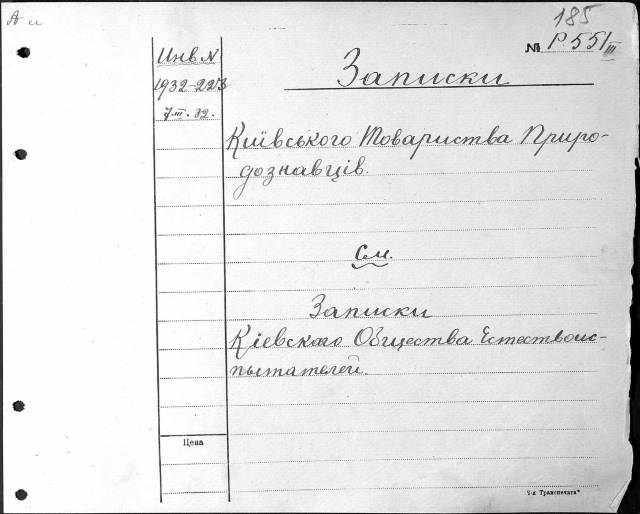 А и
185
№ Р.551/III
Инв N
1932-223
7-III-32.
Записки
Київського Товариства Приро-
дознавців.
См.
Записки
Кіевскаго Общества Естествоис-
пытателей.
Цена
Транспечать"